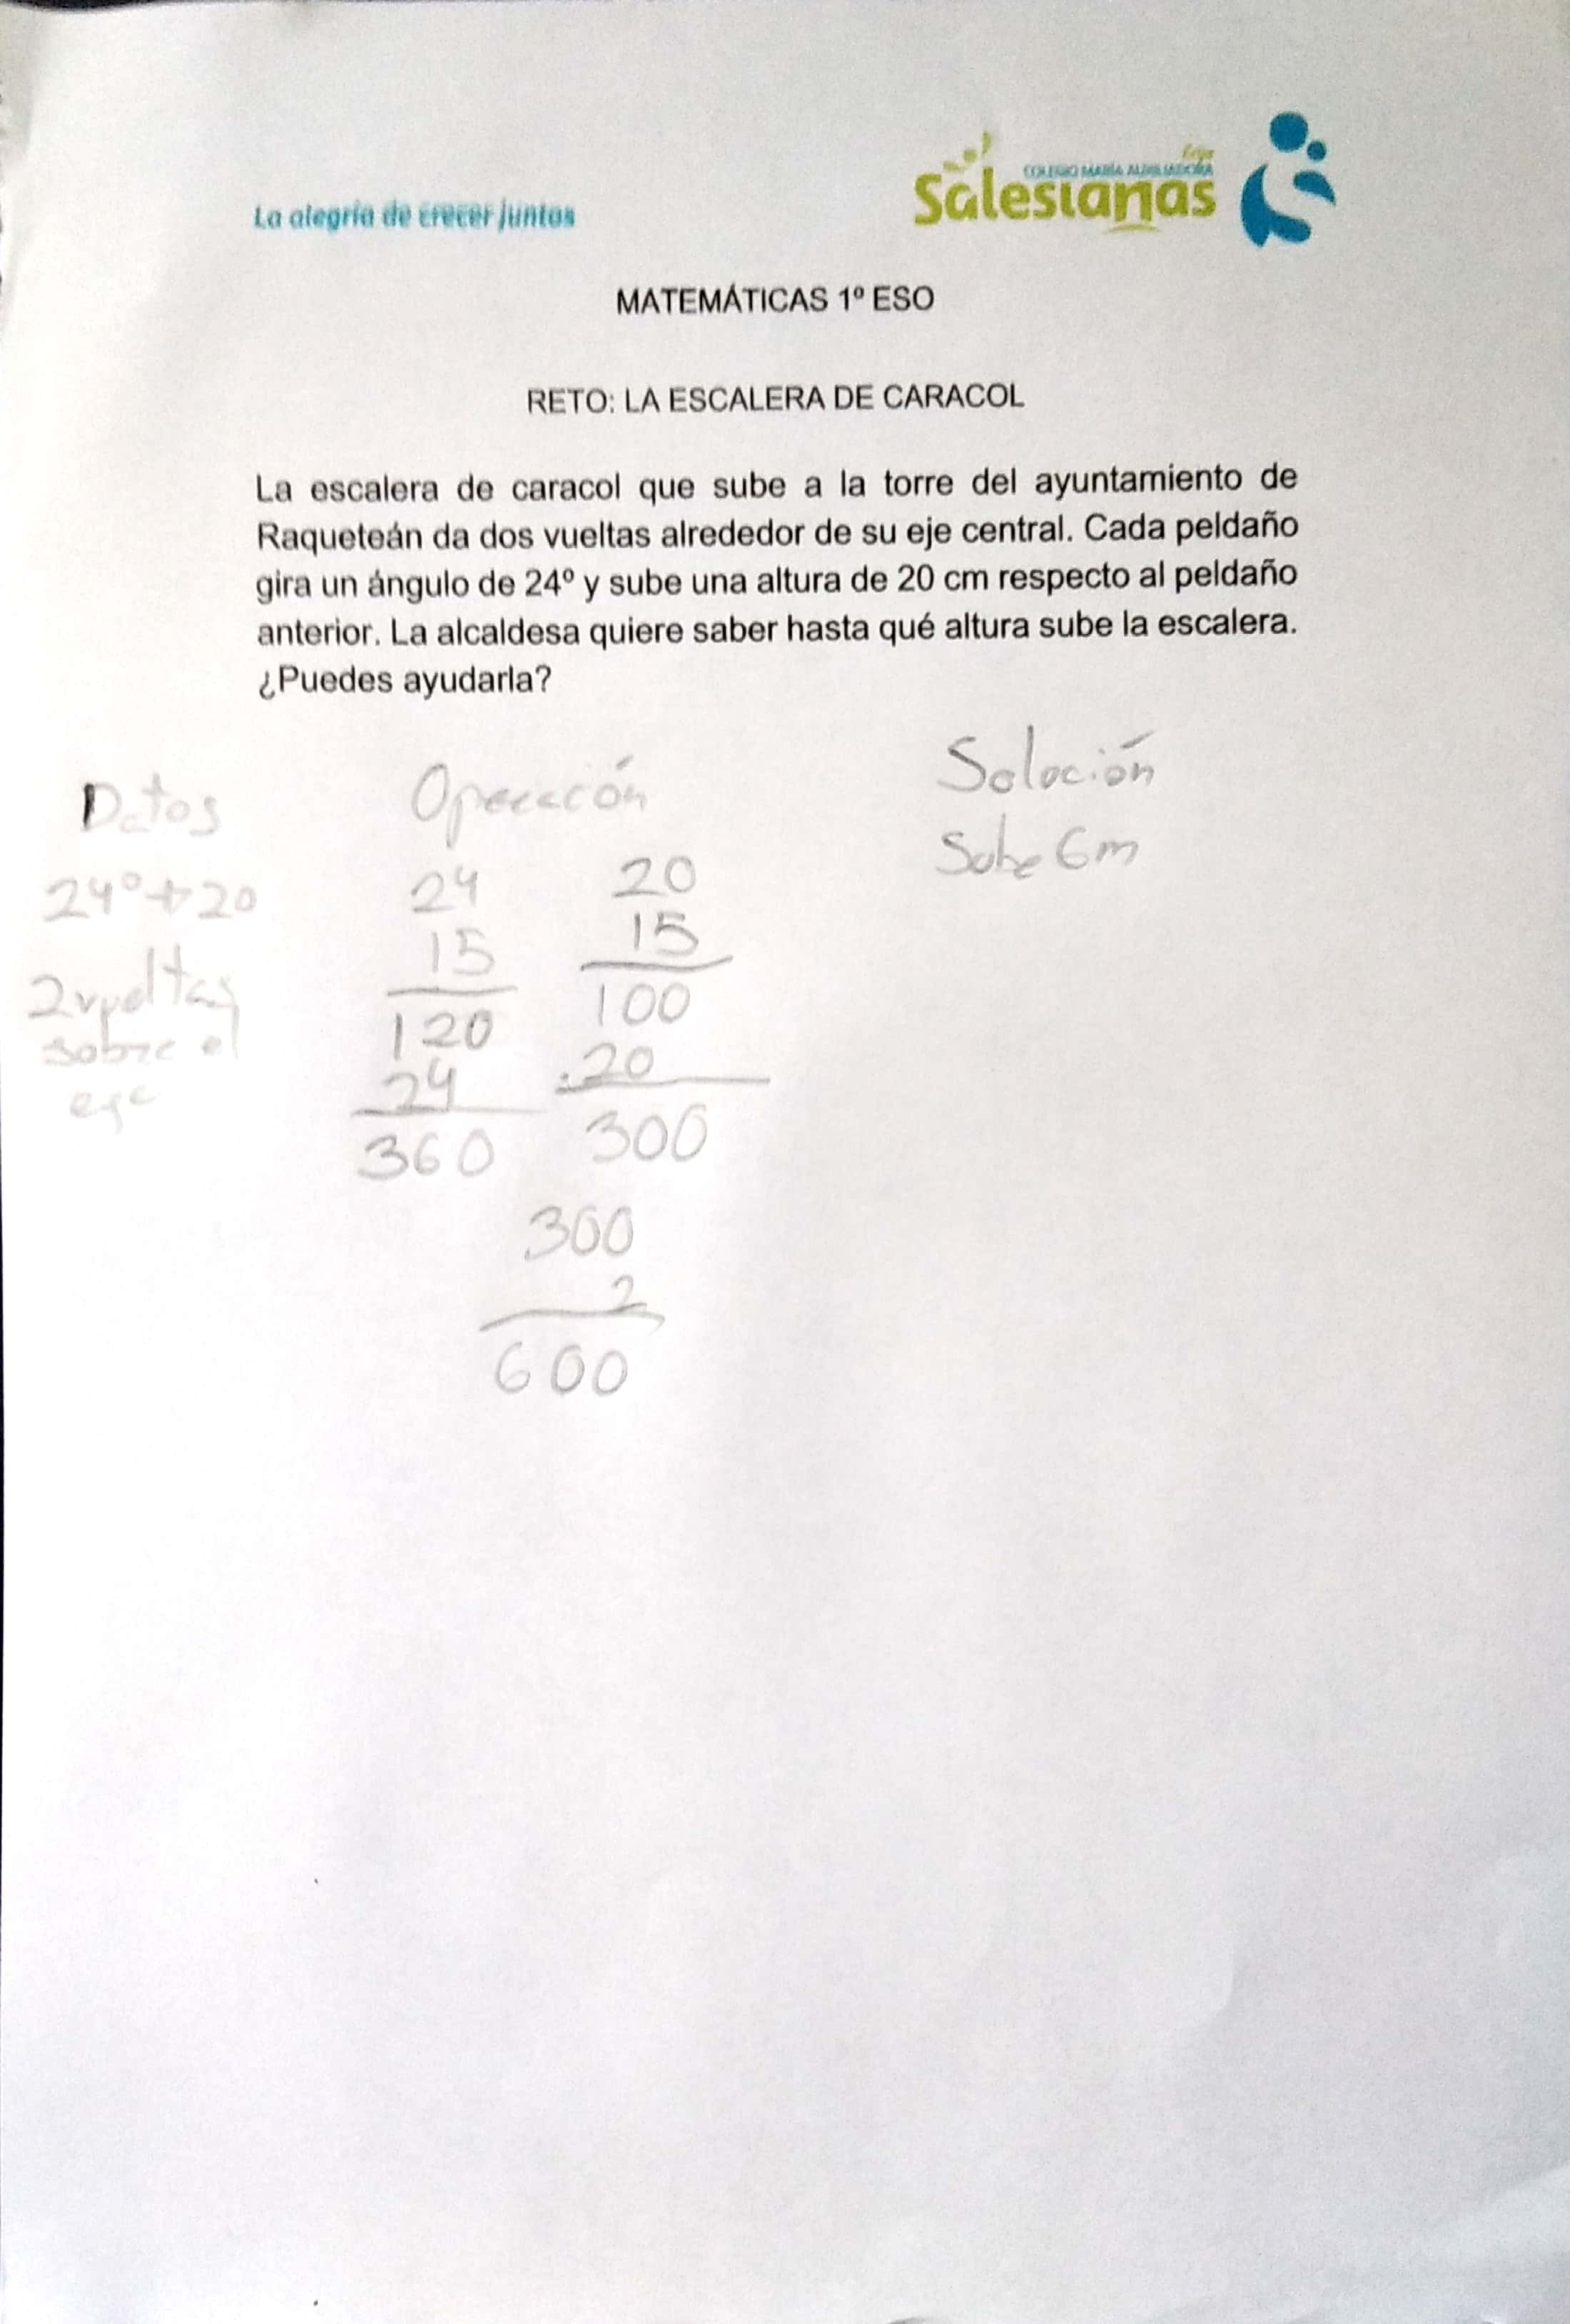 La alegría de crecer juntos
COLEGIO MARÍA AUXILIADORA
Salesianas
MATEMÁTICAS 1º ESO
RETO: LA ESCALERA DE CARACOL
La escalera de caracol que sube a la torre del ayuntamiento de
Raqueteán da dos vueltas alrededor de su eje central. Cada peldaño
gira un ángulo de 24º y sube una altura de 20 cm respecto al peldaño
anterior. La alcaldesa quiere saber hasta qué altura sube la escalera.
¿Puedes ayudarla?
Datos
24º + 20
2 vueltas
sobre el
eje
Operación
24
15
120
24
360
20
15
100
.20
300
300
2
600
Solución
Sube 6m